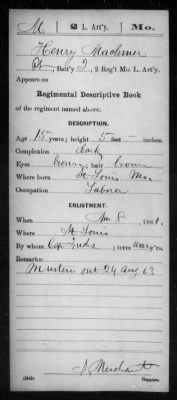 M | 2 L. Art'y. | Mo.
Henry Machmer
Pt., Batt'y I, 2 Reg't Mo. L. Art'y.
Appears on
Regimental Descriptive Book
of the regiment named above.
DESCRIPTION.
Age 18 years; height 5 feet - inches.
Complexion dark
Eyes brown; hair brown
Where born St. Louis Mo
Occupation Laborer
ENLISTMENT.
When Nov 8, 1861.
Where St Louis
By whom Cap ; term y'rs.
Remarks:
Muster out 24 Aug 63
Merchant
Copyist.